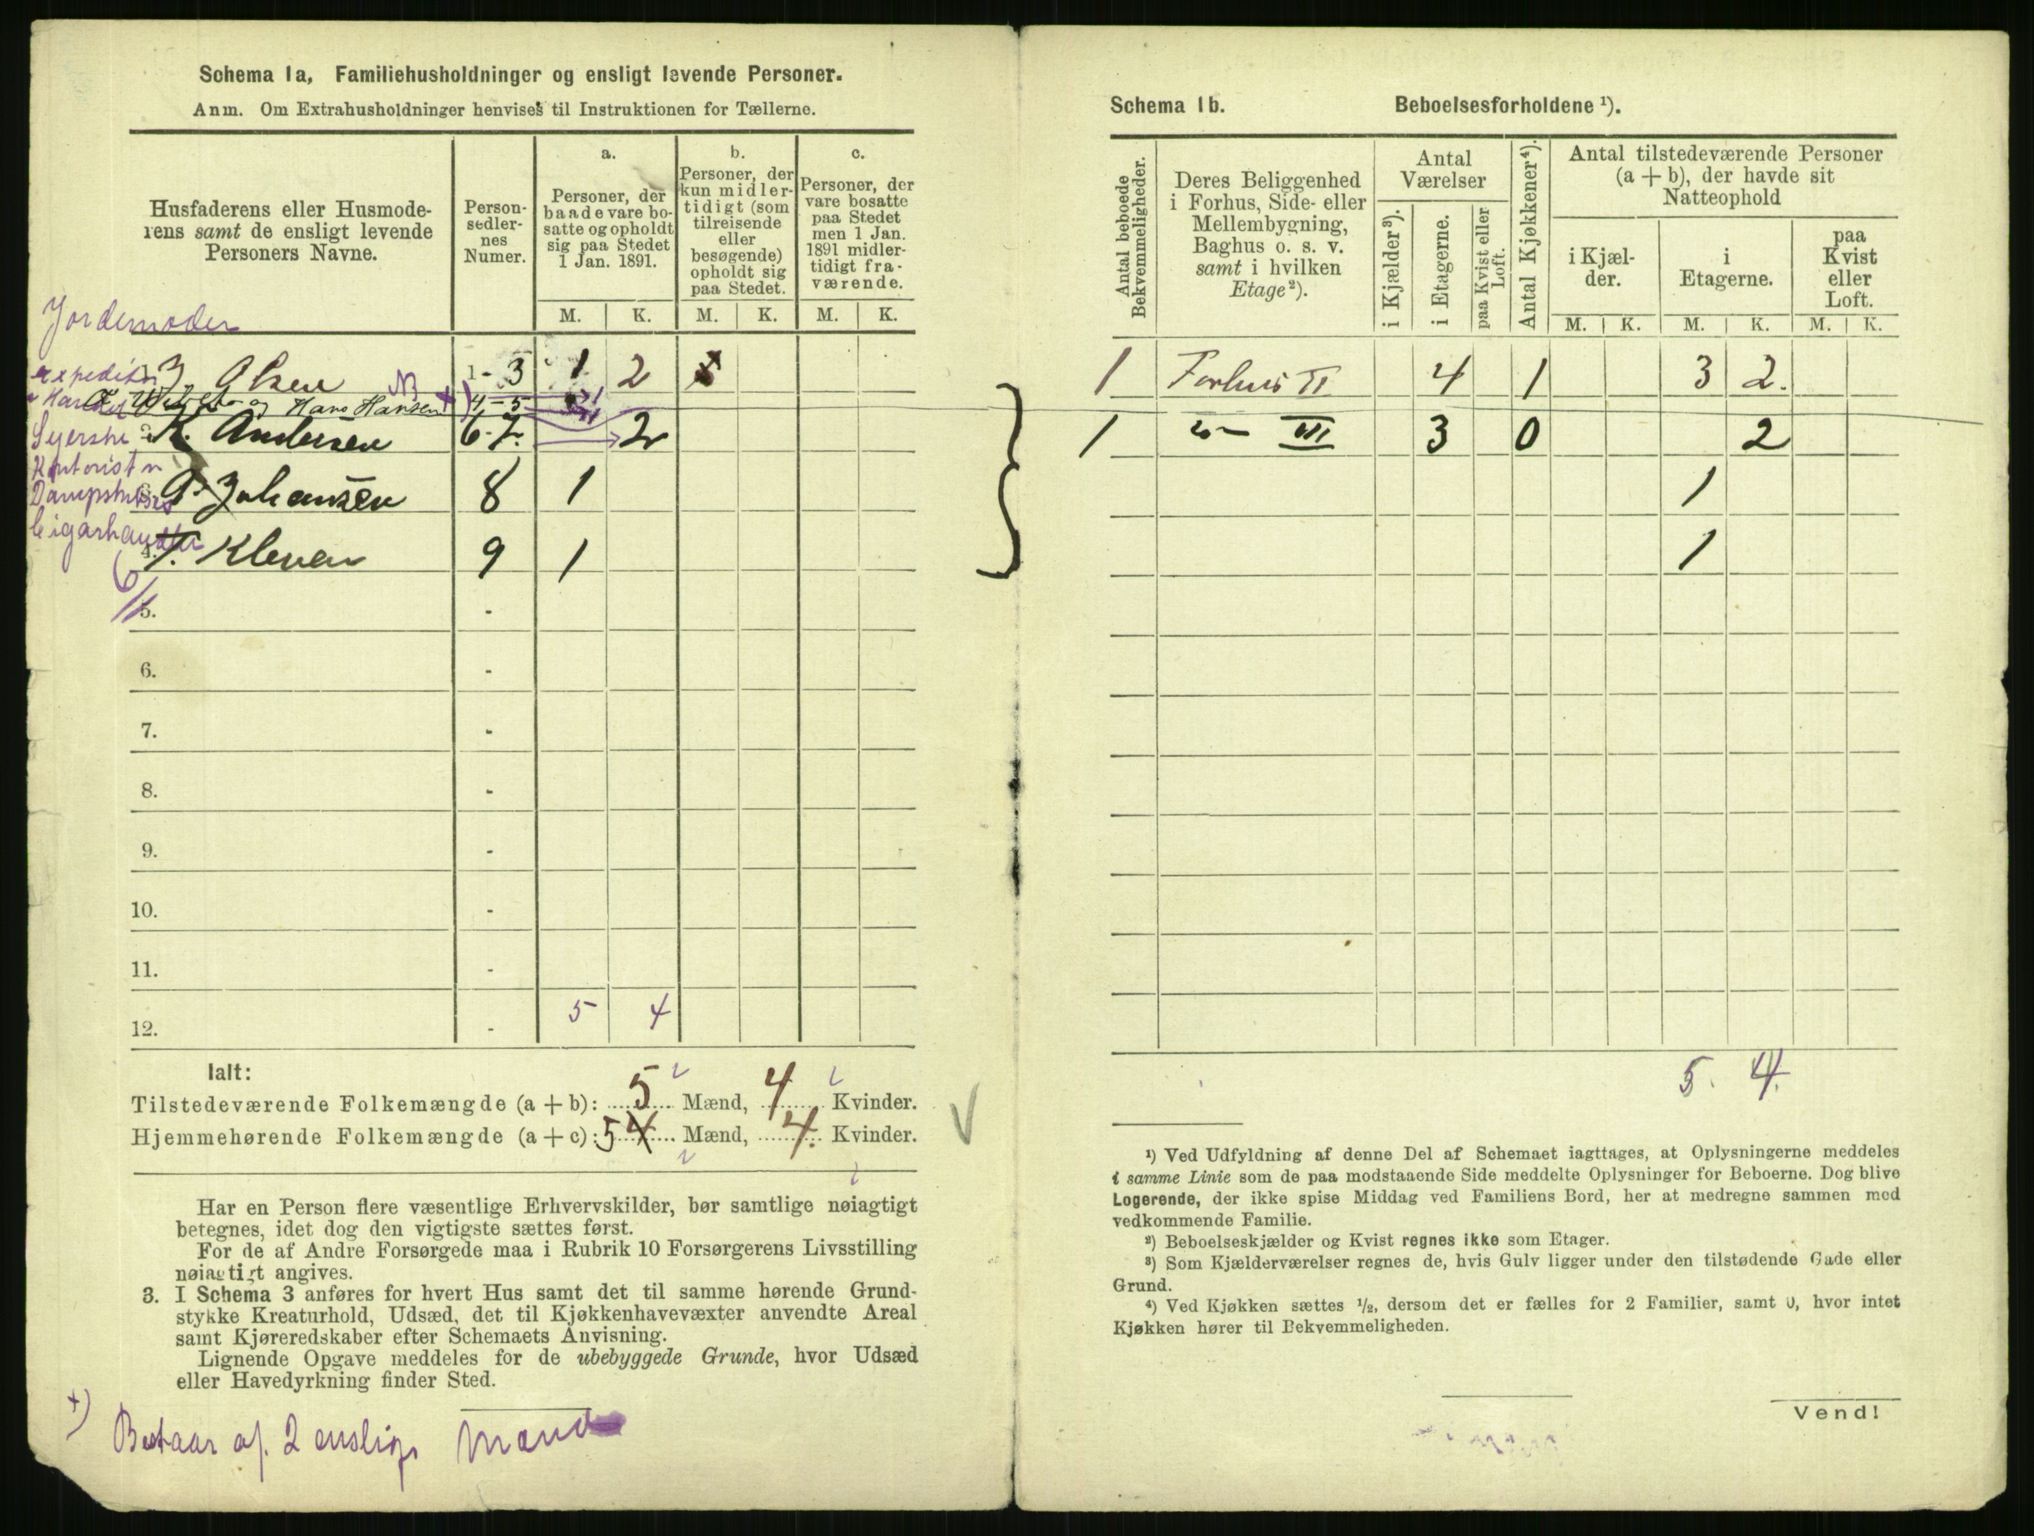 Schema 1a, Familiehusholdninger og ensligt levende Personer.
Anm. Om Extrahusholdninger henvises til Instruktionen for Tællerne.
Husfaderens eller Husmode-
rens samt de ensligt levende
Personers Navne.
Person-
sedler-
nes
Numer.
a.
Personer, der
baade vare bo-
satte og opholdt
sig paa Stedet
1 Jan. 1891.
b.
Personer, der
kun midler-
tidigt (som
tilreisende
eller
besøgende)
opholdt sig
paa Stedet.
c.
Personer, der
vare bosatte
paa Stedet
men 1 Jan.
1891 midler-
tidigt fra-
værende.
M. K. M. K. M. K.
Jordemoder
J. Olsen 1 - 3 1 2
og Hans Hansen NB +) 4 - 5
Syerske 2. K. Andersen 6-7. 2
Kontorist
3. Johansen 8 1
Cigarhandler
4. T. Kleven 9 1
6/1
5. -
6. -
7. -
8. -
9. -
10. -
11. -
12. - 5 4
Ialt:
Tilstedeværende Folkemængde (a + b): 5 Mænd, 4 Kvinder.
Hjemmehørende Folkemængde (a + c): 5 4 Mænd, 4. Kvinder.
Har en Person flere væsentlige Erhvervskilder, bør samtlige nøiagtigt
betegnes, idet dog den vigtigste sættes først.
For de af Andre Forsørgede maa i Rubrik 10 Forsørgerens Livsstilling
nøiagtigt angives.
3. I Schema 3 anføres for hvert Hus samt det til samme hørende Grund-
stykke Kreaturhold, Udsæd, det til Kjøkkenhavevæxter anvendte Areal
samt Kjøreredskaber efter Schemaets Anvisning.
Lignende Opgave meddeles for de ubebyggede Grunde, hvor Udsæd
eller Havedyrkning finder Sted.
+) Bestaar af 2 enslige Mænd
Schema 1b. Beboelsesforholdene ¹).
Antal beboede
Bekvemmeligheder.
Deres Beliggenhed
i Forhus, Side- eller
Mellembygning,
Baghus o. s. v.
samt i hvilken
Etage ²).
Antal
Værelser
i Kjælder ³).
i Etagerne.
paa Kvist eller
Loft.
Antal Kjøkkener ⁴).
Antal tilstedeværende Personer
(a + b), der havde sit
Natteophold
i Kjæl-
der.
i
Etagerne.
paa
Kvist
eller
Loft.
M. K. M. K. M. K.
1 Forhus II 4 1 3 2.
1 do - III 3 0 2
1
1
5. 4.
¹) Ved Udfyldning af denne Del af Schemaet iagttages, at Oplysningerne meddeles
i samme Linie som de paa modstaaende Side meddelte Oplysninger for Beboerne. Dog blive
Logerende, der ikke spise Middag ved Familiens Bord, her at medregne sammen med
vedkommende Familie.
²) Beboelseskjælder og Kvist regnes ikke som Etager.
³) Som Kjælderværelser regnes de, hvis Gulv ligger under den tilstødende Gade eller
Grund.
⁴) Ved Kjøkken sættes ½, dersom det er fælles for 2 Familier, samt 0, hvor intet
Kjøkken hører til Bekvemmeligheden.
Vend!